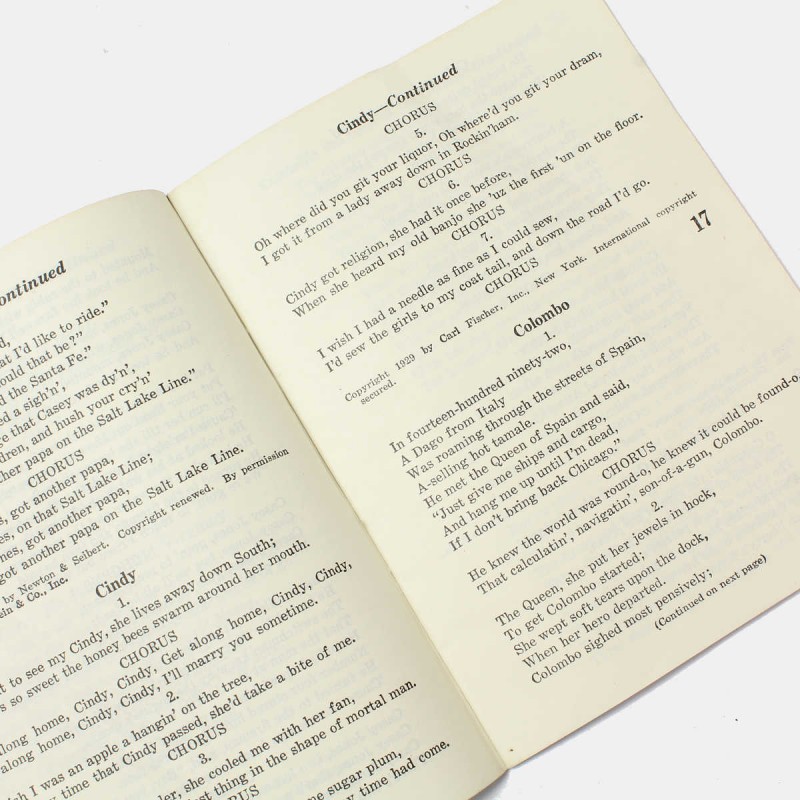 ontinued
d,
at I'd like to ride."
ould that be?"
d the Santa Fe."
ed a sigh'n',
e that Casey was dy'n',
dren, and hush your cry'n'
her papa on the Salt Lake Line."
CHORUS
s, got another papa,
es, on that Salt Lake Line;
nes, got another papa,
got another papa on the Salt Lake Line.
by Newton & Seibert. Copyright renewed. By permission
ein & Co., Inc.
Cindy
1.
t to see my Cindy, she lives away down South;
s so sweet the honey bees swarm around her mouth.
CHORUS
along home, Cindy, Cindy, Get along home, Cindy, Cindy,
along home, Cindy, Cindy, I'll marry you sometime.
2.
ish I was an apple a hangin' on the tree,
y time that Cindy passed, she'd take a bite of me.
CHORUS
3.
ler, she cooled me with her fan,
st thing in the shape of mortal man.
RUS
e sugar plum,
y time had come.
Cindy—Continued
CHORUS
5.
Oh where did you git your liquor, Oh where'd you git your dram,
I got it from a lady away down in Rockin'ham.
CHORUS
6.
Cindy got religion, she had it once before,
When she heard my old banjo she 'uz the first 'un on the floor.
CHORUS
7.
I wish I had a needle as fine as I could sew,
I'd sew the girls to my coat tail, and down the road I'd go.
CHORUS
Copyright 1929 by Carl Fischer, Inc., New York. International copyright
secured.
17
Colombo
1.
In fourteen-hundred ninety-two,
A Dago from Italy
Was roaming through the streets of Spain,
A-selling hot tamale.
He met the Queen of Spain and said,
"Just give me ships and cargo,
And hang me up until I'm dead,
If I don't bring back Chicago."
CHORUS
He knew the world was round-o, he knew it could be found-o,
That calculatin', navigatin', son-of-a-gun, Colombo.
2.
The Queen, she put her jewels in hock,
To get Colombo started;
She wept soft tears upon the dock,
When her hero departed.
Colombo sighed most pensively;
(Continued on next page)